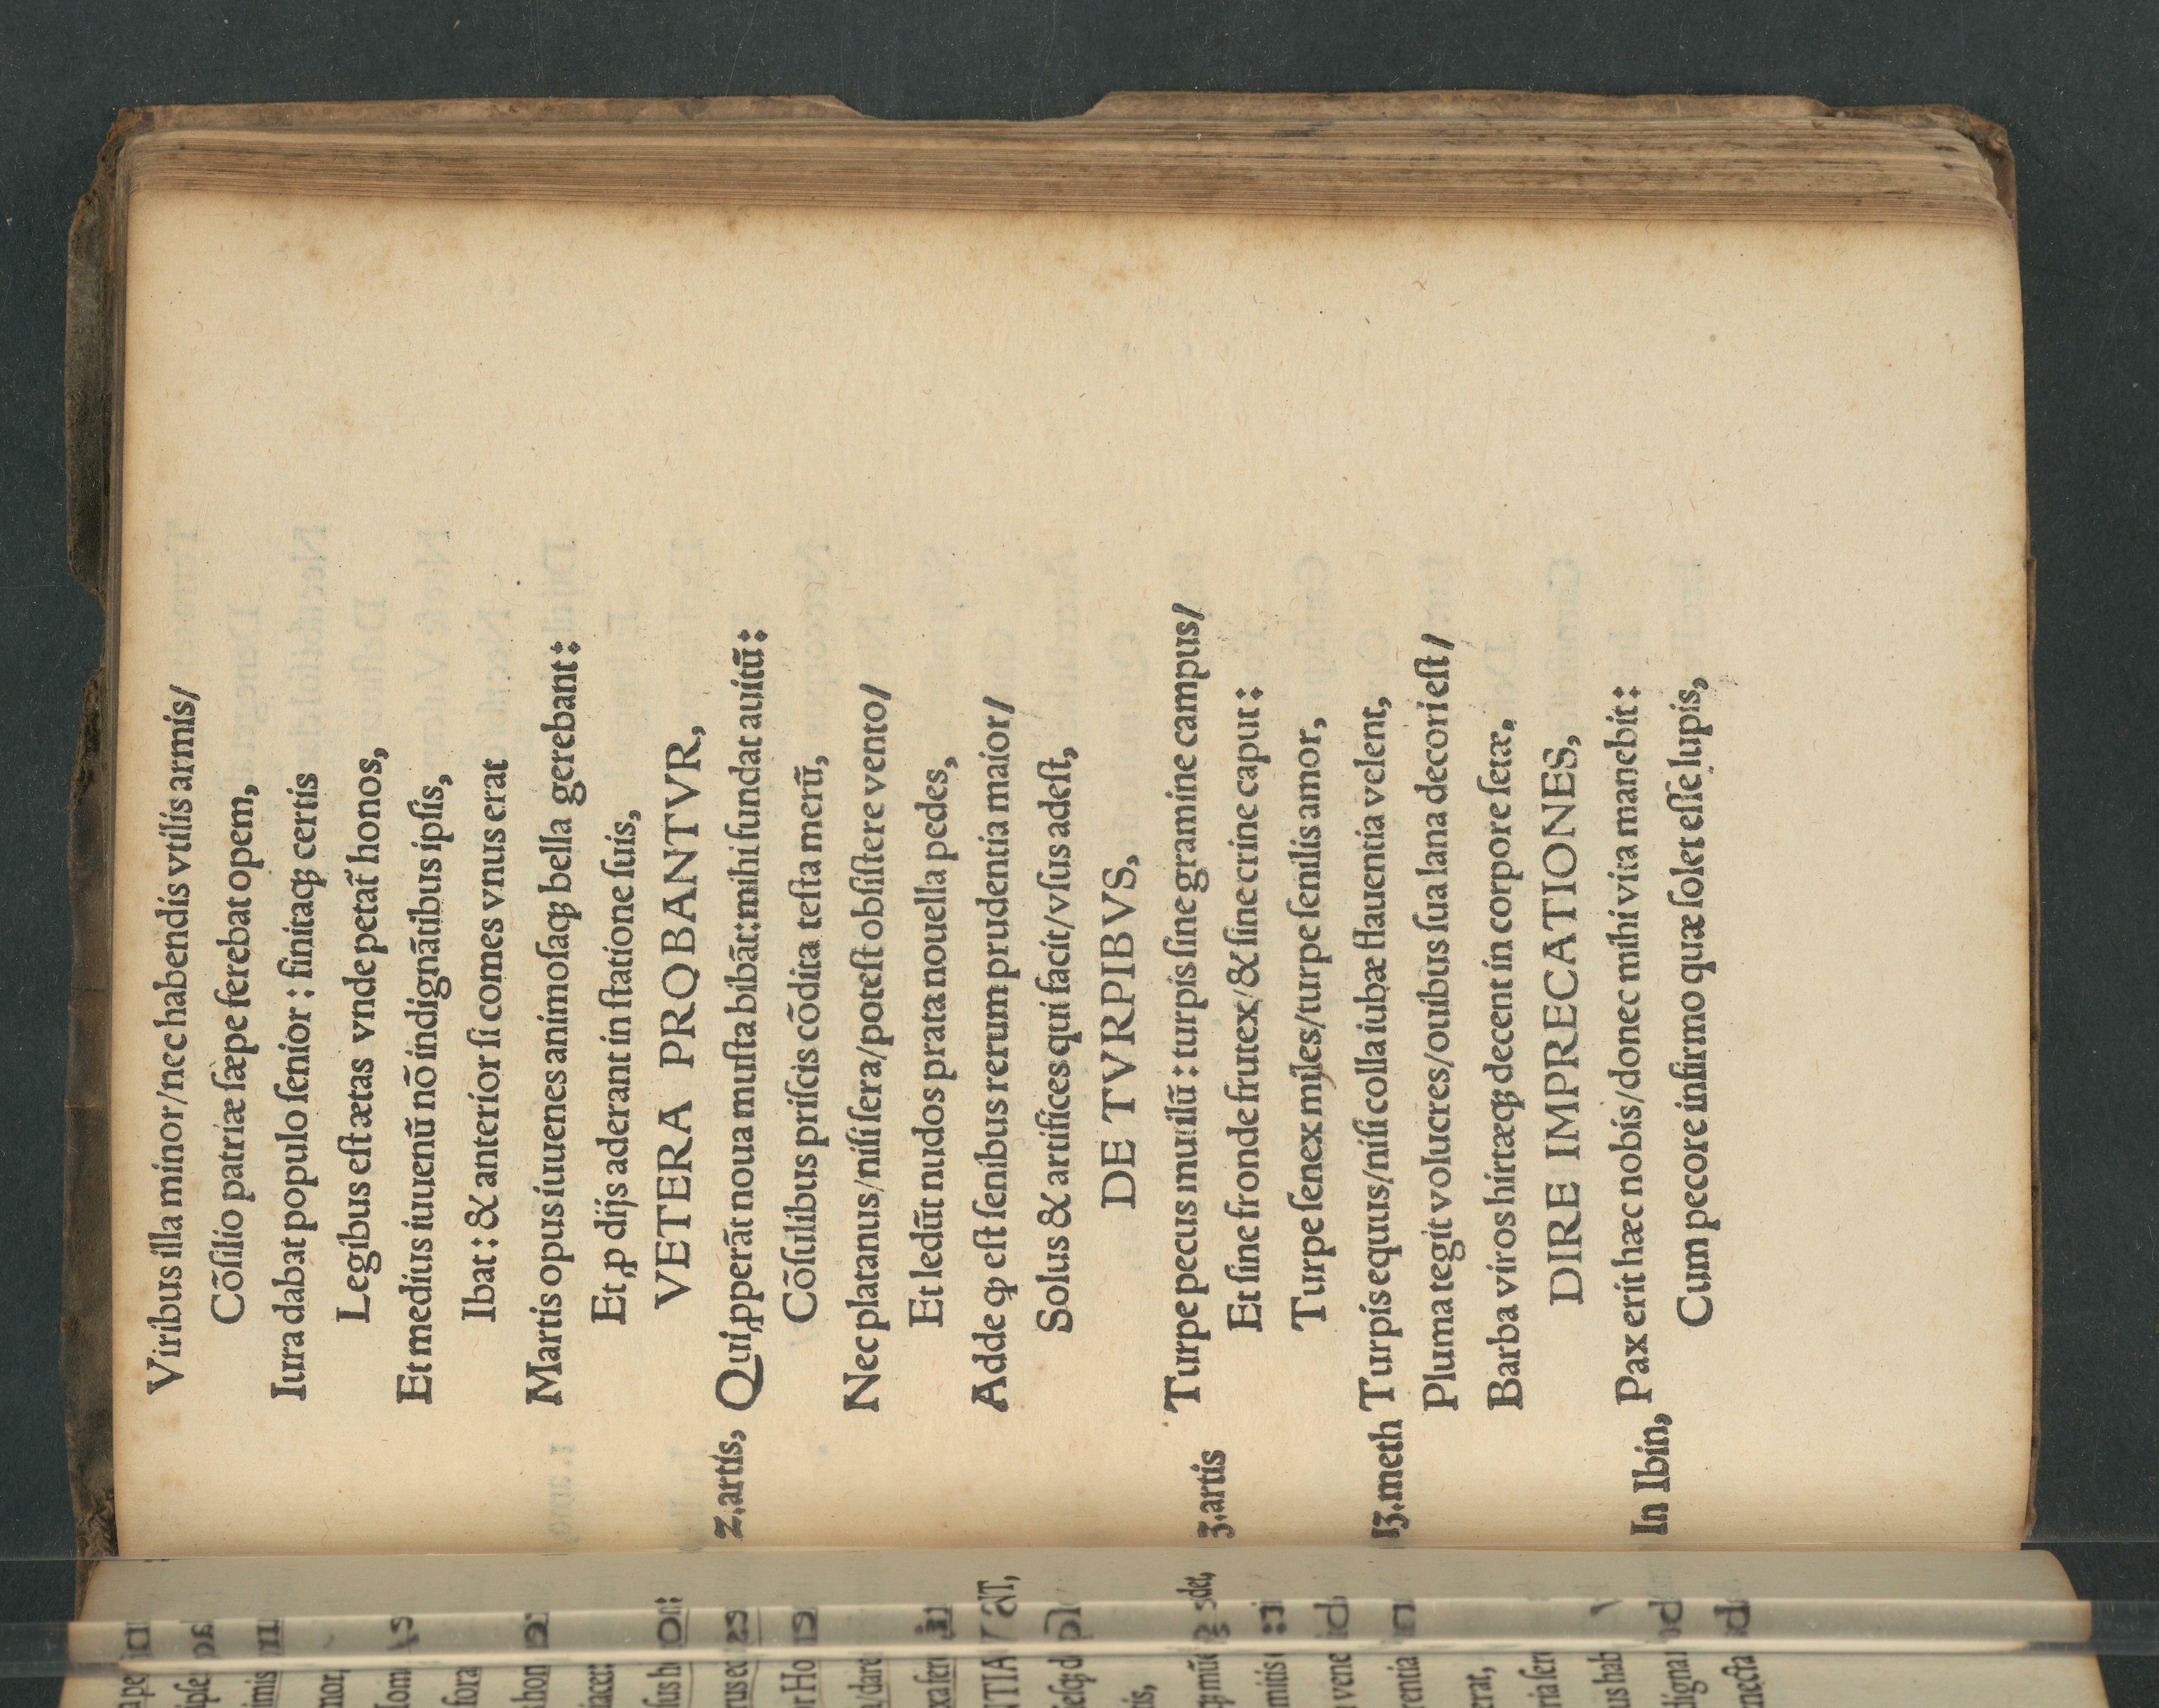 Viribus illa minor/nec habendis vtilis armis/
Cõſilio patriæ ſæpe ferebat opem,
Iura dabat populo ſenior : finitaqꝫ certis
Legibus eſt ætas vnde petat̃ honos,
Et medius iuuenũ nõ indignãtibus ipſis,
Ibat : & anterior ſi comes vnus erat
Martis opus iuuenes animoſaqꝫ bella gerebant :
Et ꝓ dijs aderant in ſtatione ſuis,
VETERA PROBANTVR,
2.artis, Qui ꝓperãt noua muſta bibãt: mihi fundat auitũ :
Cõſulibus priſcis cõdita teſta merũ,
Nec platanus/niſi ſera/poteſt obſiſtere vento/
Et ledũt nudos prata nouella pedes,
Adde ꝙ eſt ſenibus rerum prudentia maior/
Solus & artifices qui facit/vſus adeſt,
DE TVRPIBVS,
3.artis Turpe pecus mutilũ : turpis ſine gramine campus/
Et ſine fronde frutex/& ſine crine caput :
Turpe ſenex miles/turpe ſenilis amor,
13.meth Turpis equus/niſi colla iubæ flauentia velent,
Pluma tegit volucres/ouibus ſua lana decori eſt/
Barba viros hirtæqꝫ decent in corpore ſetæ.
DIRE IMPRECATIONES,
In Ibin, Pax erit hæc nobis/donec mihi vita manebit :
Cum pecore infirmo quæ ſolet eſſe lupis,